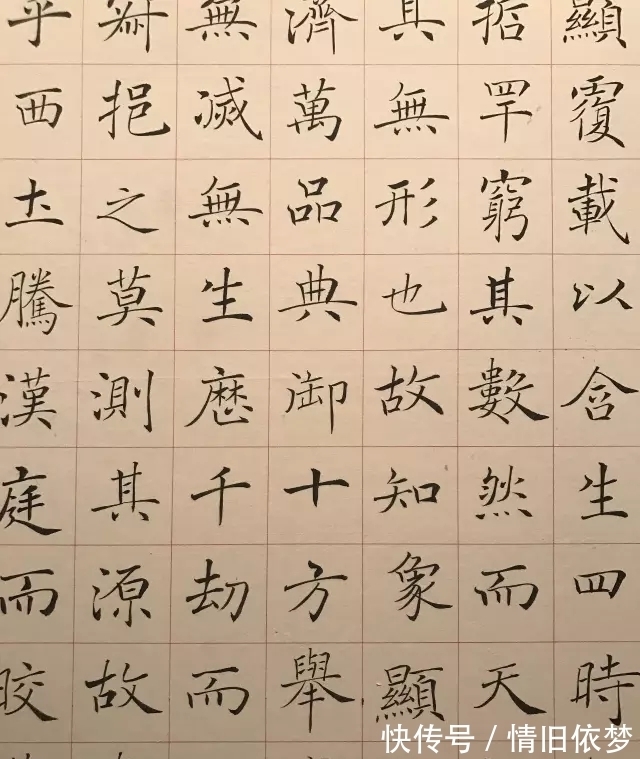 顯覆載以含生四時
哲罕窮其數然而天
其無形也故知象顯
濟萬品典御十方舉
無滅無生歷千劫而
挹之莫測其源故
乎西土騰漢庭而皎
快传号 / 情旧依梦